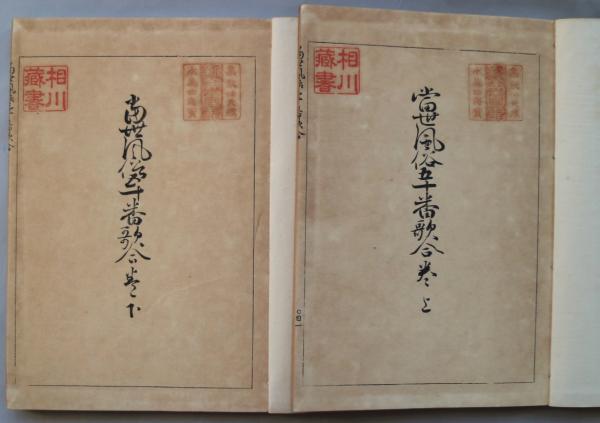 相川
藏書
當世風俗五十番歌合巻上
相川
藏書
當世風俗五十番歌合巻下